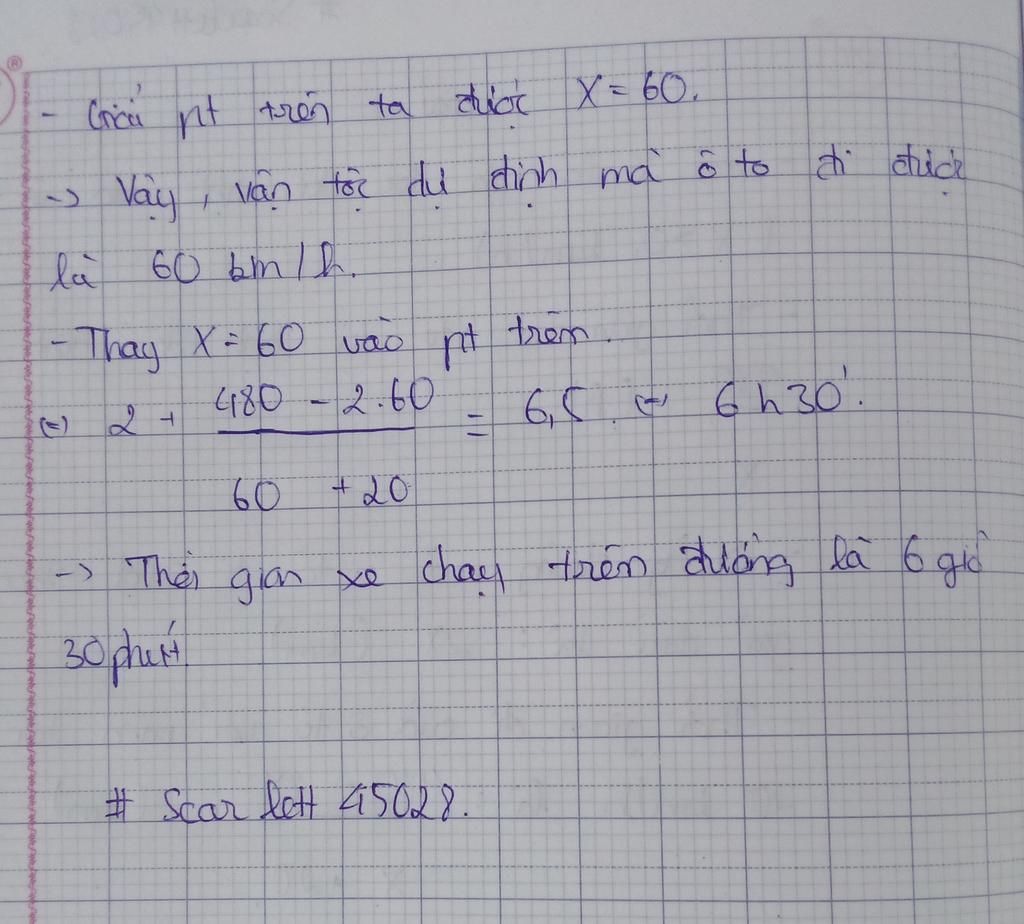 - Giải pt trên ta được X = 60.
-> Vậy, vận tốc dự định mà ô to đi được
là 60 km/h.
- Thay X = 60 vào pt trên.
(=) 2 + (480 - 2.60)/(60 + 20) = 6,5 (=) 6h30'.
-> Thời gian xe chạy trên đường là 6 giờ
30 phút
# Scarlett 45028.